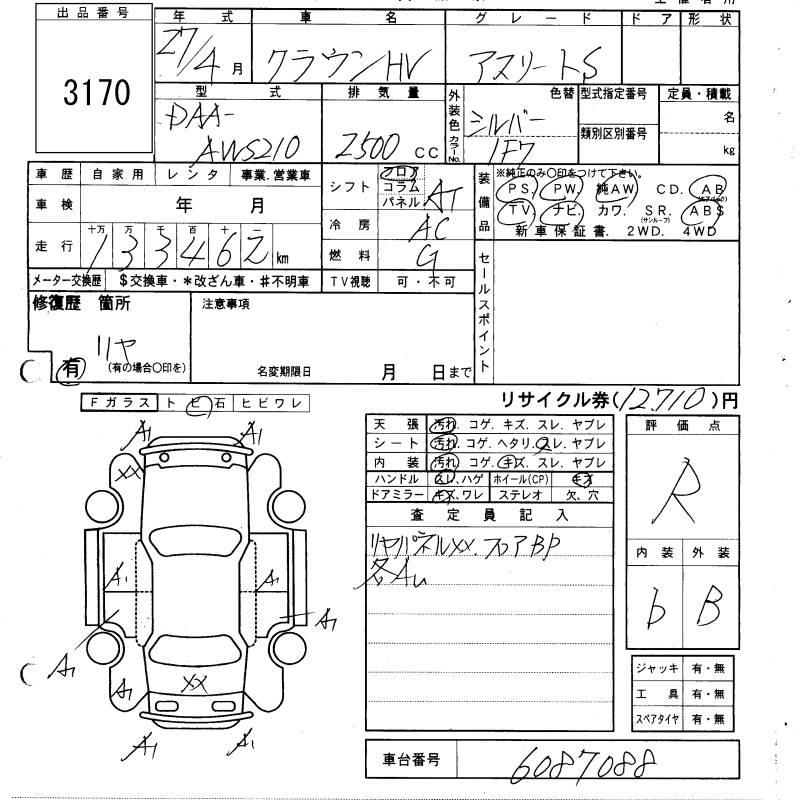 出品番号
3170
年式 車名 グレード ドア 形状
27/4月 クラウンHV アスリートS
型式 排気量 外装色 カラーNo. 色替 型式指定番号 定員・積載
DAA-AWS210 2500cc シルバー 1F7 類別区別番号 名 kg
車歴 自家用 レンタ 事業.営業車
車検 年 月
走行 十万 万 千 百 十
133462 km
メーター交換歴 $交換車・*改ざん車・#不明車
シフト フロア コラム パネル AT
冷房 AC
燃料 G
TV視聴 可・不可
装備品 ※純正のみ○印をつけて下さい。
PS. PW. 純AW CD. AB (エアバッグ)
TV. ナビ. カワ. SR. (サンルーフ) ABS
新車保証書. 2WD. 4WD
セールスポイント
修復歴 箇所 リヤ
有 (有の場合○印を)
注意事項
名変期限日 月 日まで
リサイクル券(12,710)円
Fガラス トビ石 ヒビワレ
A1 A1
XX
A1 A1
A1 A1
A1
XX
A1 A1
天張 汚れ. コゲ. キズ. スレ. ヤブレ
シート 汚れ. コゲ. ヘタリ. スレ. ヤブレ
内装 汚れ. コゲ. キズ. スレ. ヤブレ
ハンドル スレ、ハゲ ホイール(CP) キズ
ドアミラー キズ、ワレ ステレオ 欠、穴
査定員記入
リヤパネルXX. フロアBP
各AU
評価点
R
内装 外装
b B
ジャッキ 有・無
工具 有・無
スペアタイヤ 有・無
車台番号 6087088